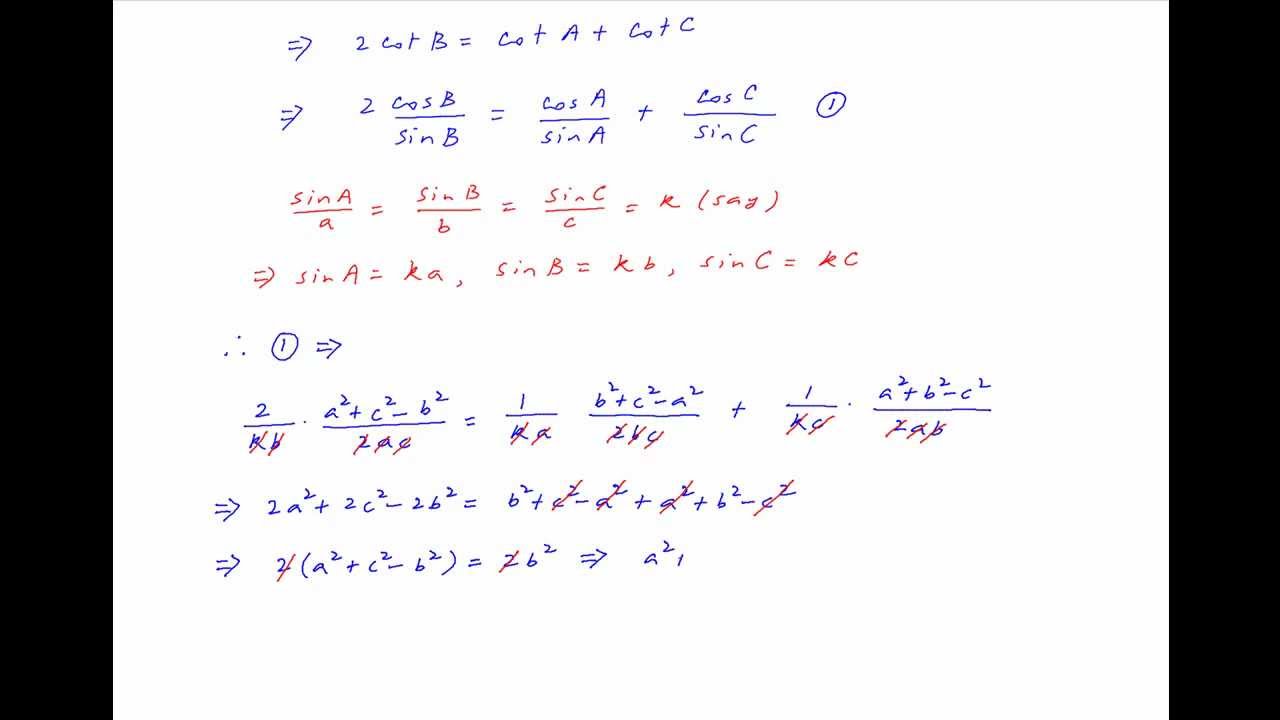 ⇒ 2 cot B = cot A + cot C
⇒ 2 cosB/sinB = cos A/sinA + cos C/sinC ①
sinA/a = sinB/b = sinC/c = k (say)
⇒ sinA = ka, sinB = kb, sinC = kC
∴ ① ⇒
2/kb · a²+c²-b²/2ac = 1/ka b²+c²-a²/2bc + 1/kc · a²+b²-c²/2ab
⇒ 2a²+2c²-2b² = b²+c²-a²+a²+b²-c²
⇒ 2(a²+c²-b²) = 2b² ⇒ a²